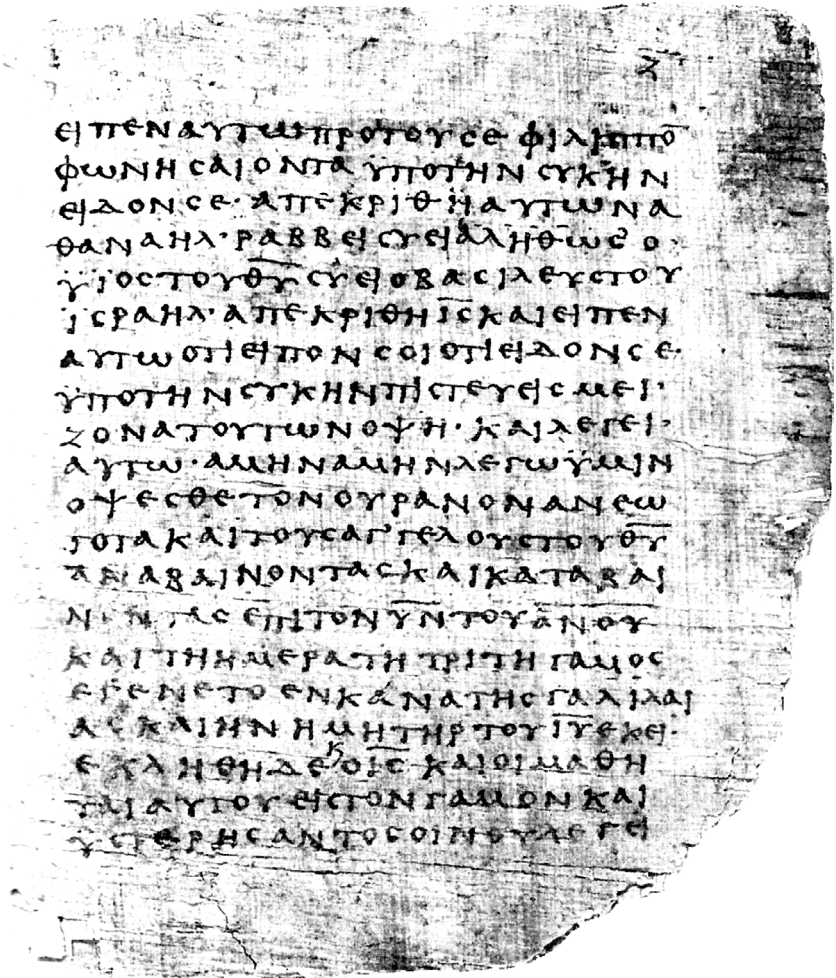 ζ̅
ειπεναυτωπροτουσεφιλιππο̅
φωνησαιονταϋποτηνσυκην
ειδονσε· απεκριθηαυτωνα
θαναηλ· ραββεισυειαληθωσ ο·
ϋιοστουθ̅υ̅συειοβασιλευστου
ϊσραηλ· απεκριθηι̅σ̅καιειπεν
αυτωοτιειπονσοιοτιειδονσε·
ϋποτηνσυκηνπιστευεισμει·
ζονατουτωνοψη· καιλεγει·
αυτω· αμηναμηνλεγωϋμιν
οψεσθετονουρανονανεω
γοτακαιτουσαγ’γελουστουθ̅υ̅
αναβαινοντασκαικαταβαι
νοντασεπιτονυ̅ν̅τουα̅ν̅ο̅υ̅
καιτηημερατητριτηγαμοσ
εγενετοενκανατησγαλιλαι
ασκαιηνημητηρτουι̅υ̅εκει·
εκληθηδεκοι̅σ̅καιοιμαθη
ταιαυτουειστονγαμονκαι
ϋστερησαντοσοινουλεγει